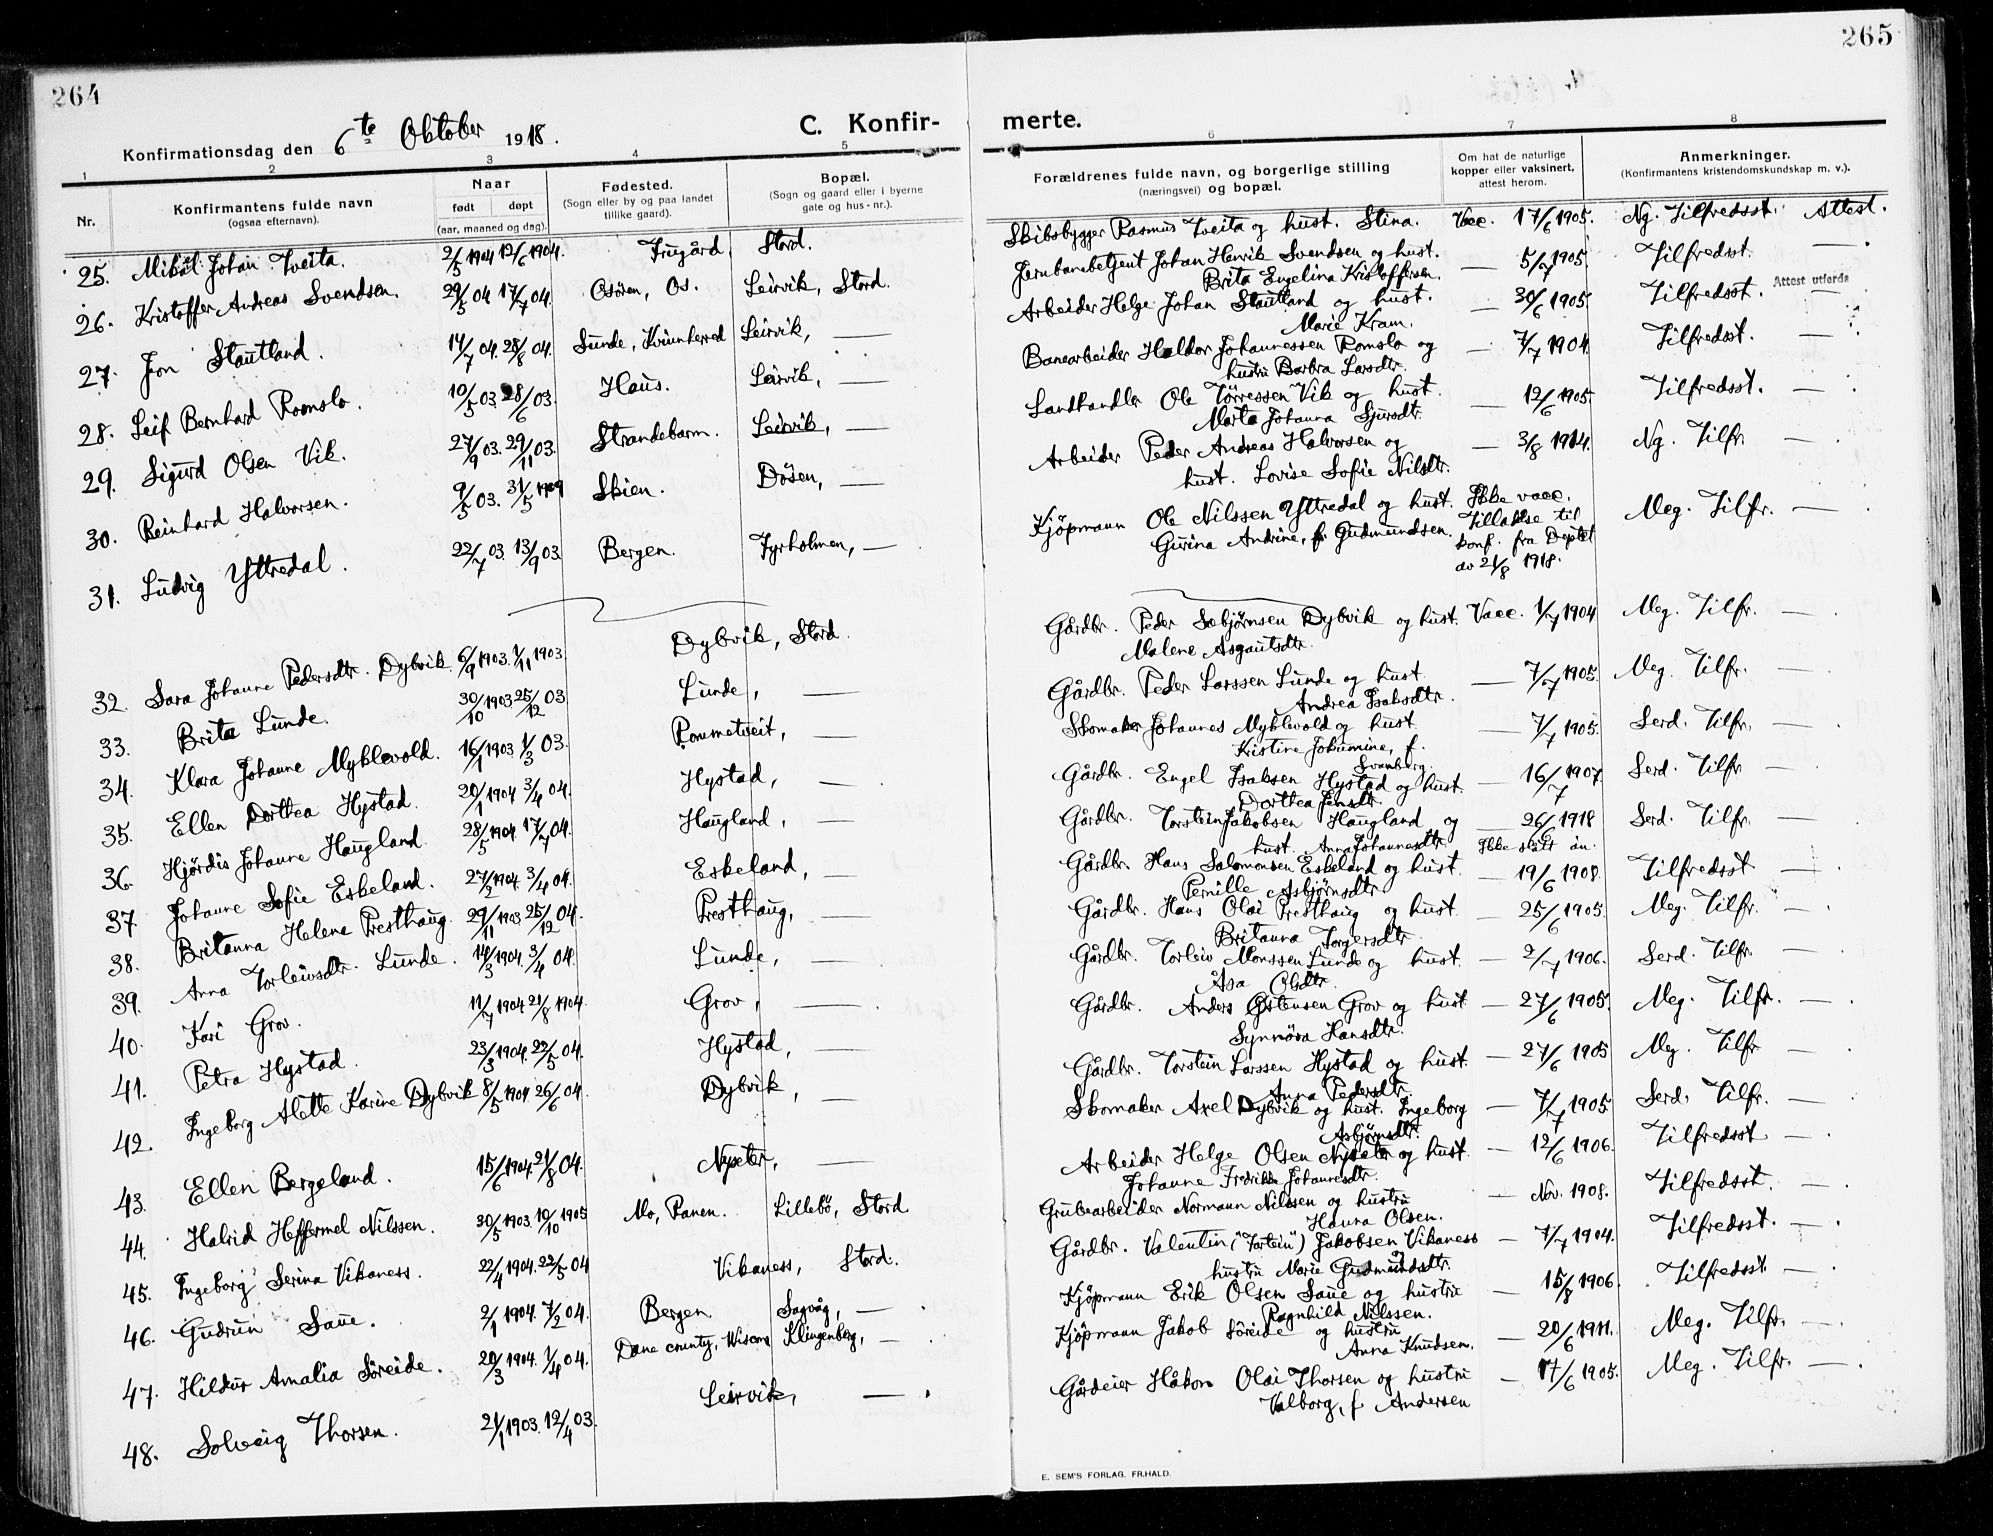 264
265
Konfirmationsdag den 6te Oktober 1918.
C. Konfir-
merte.
1 2 3 4 5 6 7 8
Nr.
Konfirmantens fulde navn
(ogsaa efternavn).
Naar
født døpt
(aar, maaned og dag).
Fødested.
(Sogn eller by og paa landet
tillike gaard).
Bopæl.
(Sogn og gaard eller i byerne
gate og hus-nr.).
Forældrenes fulde navn, og borgerlige stilling
(næringsvei) og bopæl.
Om hat de naturlige
kopper eller vaksinert,
attest herom.
Anmerkninger.
(Konfirmantens kristendomskundskap m. v.).
25. Mikal Johan Tveita. 2/5 1904 12/6 1904. Frugård, Stord. Skibsbygger Rasmus Tveita og hust. Stina. Vacc. 17/6 1905. Ng. Tilfredsst. Attest.
26. Kristoffer Andreas Svendsen. 29/5 04 17/7 04. Osören, Os. Leirvik, Stord. Jernbanebetjent Johan Henrik Svendsen og hust. — 5/7 1905. Tilfredsst. —
Brita Engelina Kristoffersen.
27. Jon Stautland. 14/7 04. 28/8 04. Sunde, Kvinnherred Leirvik, — Arbeider Helge Johan Stautland og hust. — 30/6 1905. Tilfredsst. Attest utferda —
Marie Kram.
28. Leif Bernhard Romslo. 10/5 03. 28/6 03. Haus. Leirvik, — Banearbeider Haldor Johannessen Romslo og — 7/7 1904. Tilfredsst. —
hustru Barbra Larsdtr.
29. Sigurd Olsen Vik. 27/9 03. 29/11 03. Strandebarm. Leirvik, — Landhandler Ole Tørressen Vik og hust. — 12/6 1905. Tilfredsst. —
Marta Johanna Sjursdtr.
30. Reinhard Halvorsen. 9/5 03. 31/5 1909 Skien. Døsen, — Arbeider Peder Andreas Halvorsen og — 3/8 1914. Ng. Tilfr. —
hust. Lovise Sofie Nilsdtr.
31. Ludvig Yttredal. 22/7 03. 13/9 03. Bergen. Fyrholmen, — Kjøpmann Ole Nilssen Yttredal og hust. Ikke vacc. Meg. Tilfr. —
Gurina Andrine, f. Gudmundsen. Tillatelse til
konf. fra Deptet
av 21/8 1918.
32. Sara Johanne Pedersdtr. Dybvik. 6/9 1903. 1/11 1903. Dybvik, Stord. Gårdbr. Peder Sæbjørnsen Dybvik og hust. Vacc. 1/7 1904 Meg. Tilfr. —
Malene Asgautsdtr.
33. Brita Lunde. 30/10 1903 25/12 03 Lunde, — Gårdbr. Peder Larssen Lunde og hust. — 7/7 1905. Meg. Tilfr. —
Andrea Isaksdtr.
34. Klara Johanne Myklevold. 16/1 1903. 1/3 03. Rommetveit, — Skomaker Johannes Myklevold og hust. — 7/7 1905. Serd. Tilfr. —
Kristine Jokumine, f.
Svanberg.
35. Ellen Dorthea Hystad. 20/1 1904 3/4 04. Hystad, — Gårdbr. Engel Isaksen Hystad og hust. — 16/7 1907. Serd. Tilfr. —
Dorthea Jensdtr.
36. Hjørdis Johanne Haugland. 28/5 1904. 17/7 04. Haugland, — Gårdbr. Torstein Jakobsen Haugland og — 26/6 1918 Serd. Tilfr. —
hust. Anna Johannesdtr. Ikke slått an.
37. Johanne Sofie Eskeland. 27/2 1904. 3/4 04. Eskeland, — Gårdbr. Hans Salomonsen Eskeland og hust. — 19/6 1908. Tilfredsst —
Pernille Asbjørnsdtr.
38. Britanna Helene Presthaug. 29/11 1903 25/12 04. Presthaug, — Gårdbr. Hans Olai Presthaug og hust. — 25/6 1905. Meg. Tilfr. —
Britanna Torgersdtr.
39. Anna Torleivsdtr. Lunde. 14/3 1904. 3/4 04. Lunde, — Gårdbr. Torleiv Monssen Lunde og hust. — 2/7 1906. Serd. Tilfr. —
Åsa Olsdtr.
40. Kari Grov. 11/7 1904 21/8 1904 Grov, — Gårdbr. Anders Østensen Grov og hust — 27/6 1905. Meg. Tilfr. —
Synnøva Hansdtr.
41. Petra Hystad. 23/3 1904. 22/5 04. Hystad, — Gårdbr. Torstein Larssen Hystad og hust. — 27/6 1905 Meg. Tilfr —
Anna Pedersdtr.
42. Ingeborg Alette Karine Dybvik 8/5 1904 26/6 04. Dybvik, — Skomaker Axel Dybvik og hust. Ingeborg — 7/7 1905. Serd. Tilfr. —
Asbjørnsdtr.
43. Ellen Bergeland. 15/6 1904. 21/8 04. Nysæter, — Arbeider Helge Olsen Nysæter og hust. — 12/6 1906. Tilfredsst —
Johanne Fredrikke Johannesdtr.
44. Halvid Heffermel Nilssen. 30/5 1903. 10/10 1905 Mo, Ranen. Lillebö, Stord Grubearbeider Normann Nilssen og hustru — Nov. 1908. Tilfredsst. —
Haura Olsen.
45. Ingeborg Serina Vikaness. 22/4 1904. 22/5 04 Vikaness, Stord. Gårdbr. Valentin ("Tortein") Jakobsen Vikaness — 7/7 1904. Tilfredsst. —
hustru Marie Gudmundsdtr.
46. Gudrun Saue. 2/1 1904. 7/2 04. Bergen Sagvåg, — Kjøpmann Erik Olsen Saue og hustru — 15/8 1906. Tilfredsst —
Ragnhild Nilssen.
47. Hildur Amalia Söreide. 20/3 1904. 1/4 04. Dane county, Wiscons Klingenberg, — Kjöpmann Jakob Söreide og hustru — 20/6 1911. Meg. Tilfr. —
Anna Knudsen.
48. Solveig Thorsen. 21/1 1903. 12/4 03. Leirvik, — Gårdeier Håkon Olai Thorsen og hustru — 17/6 1905. Meg. Tilfr. —
Valborg, f. Andersen
E. SEM'S FORLAG. FR.HALD.